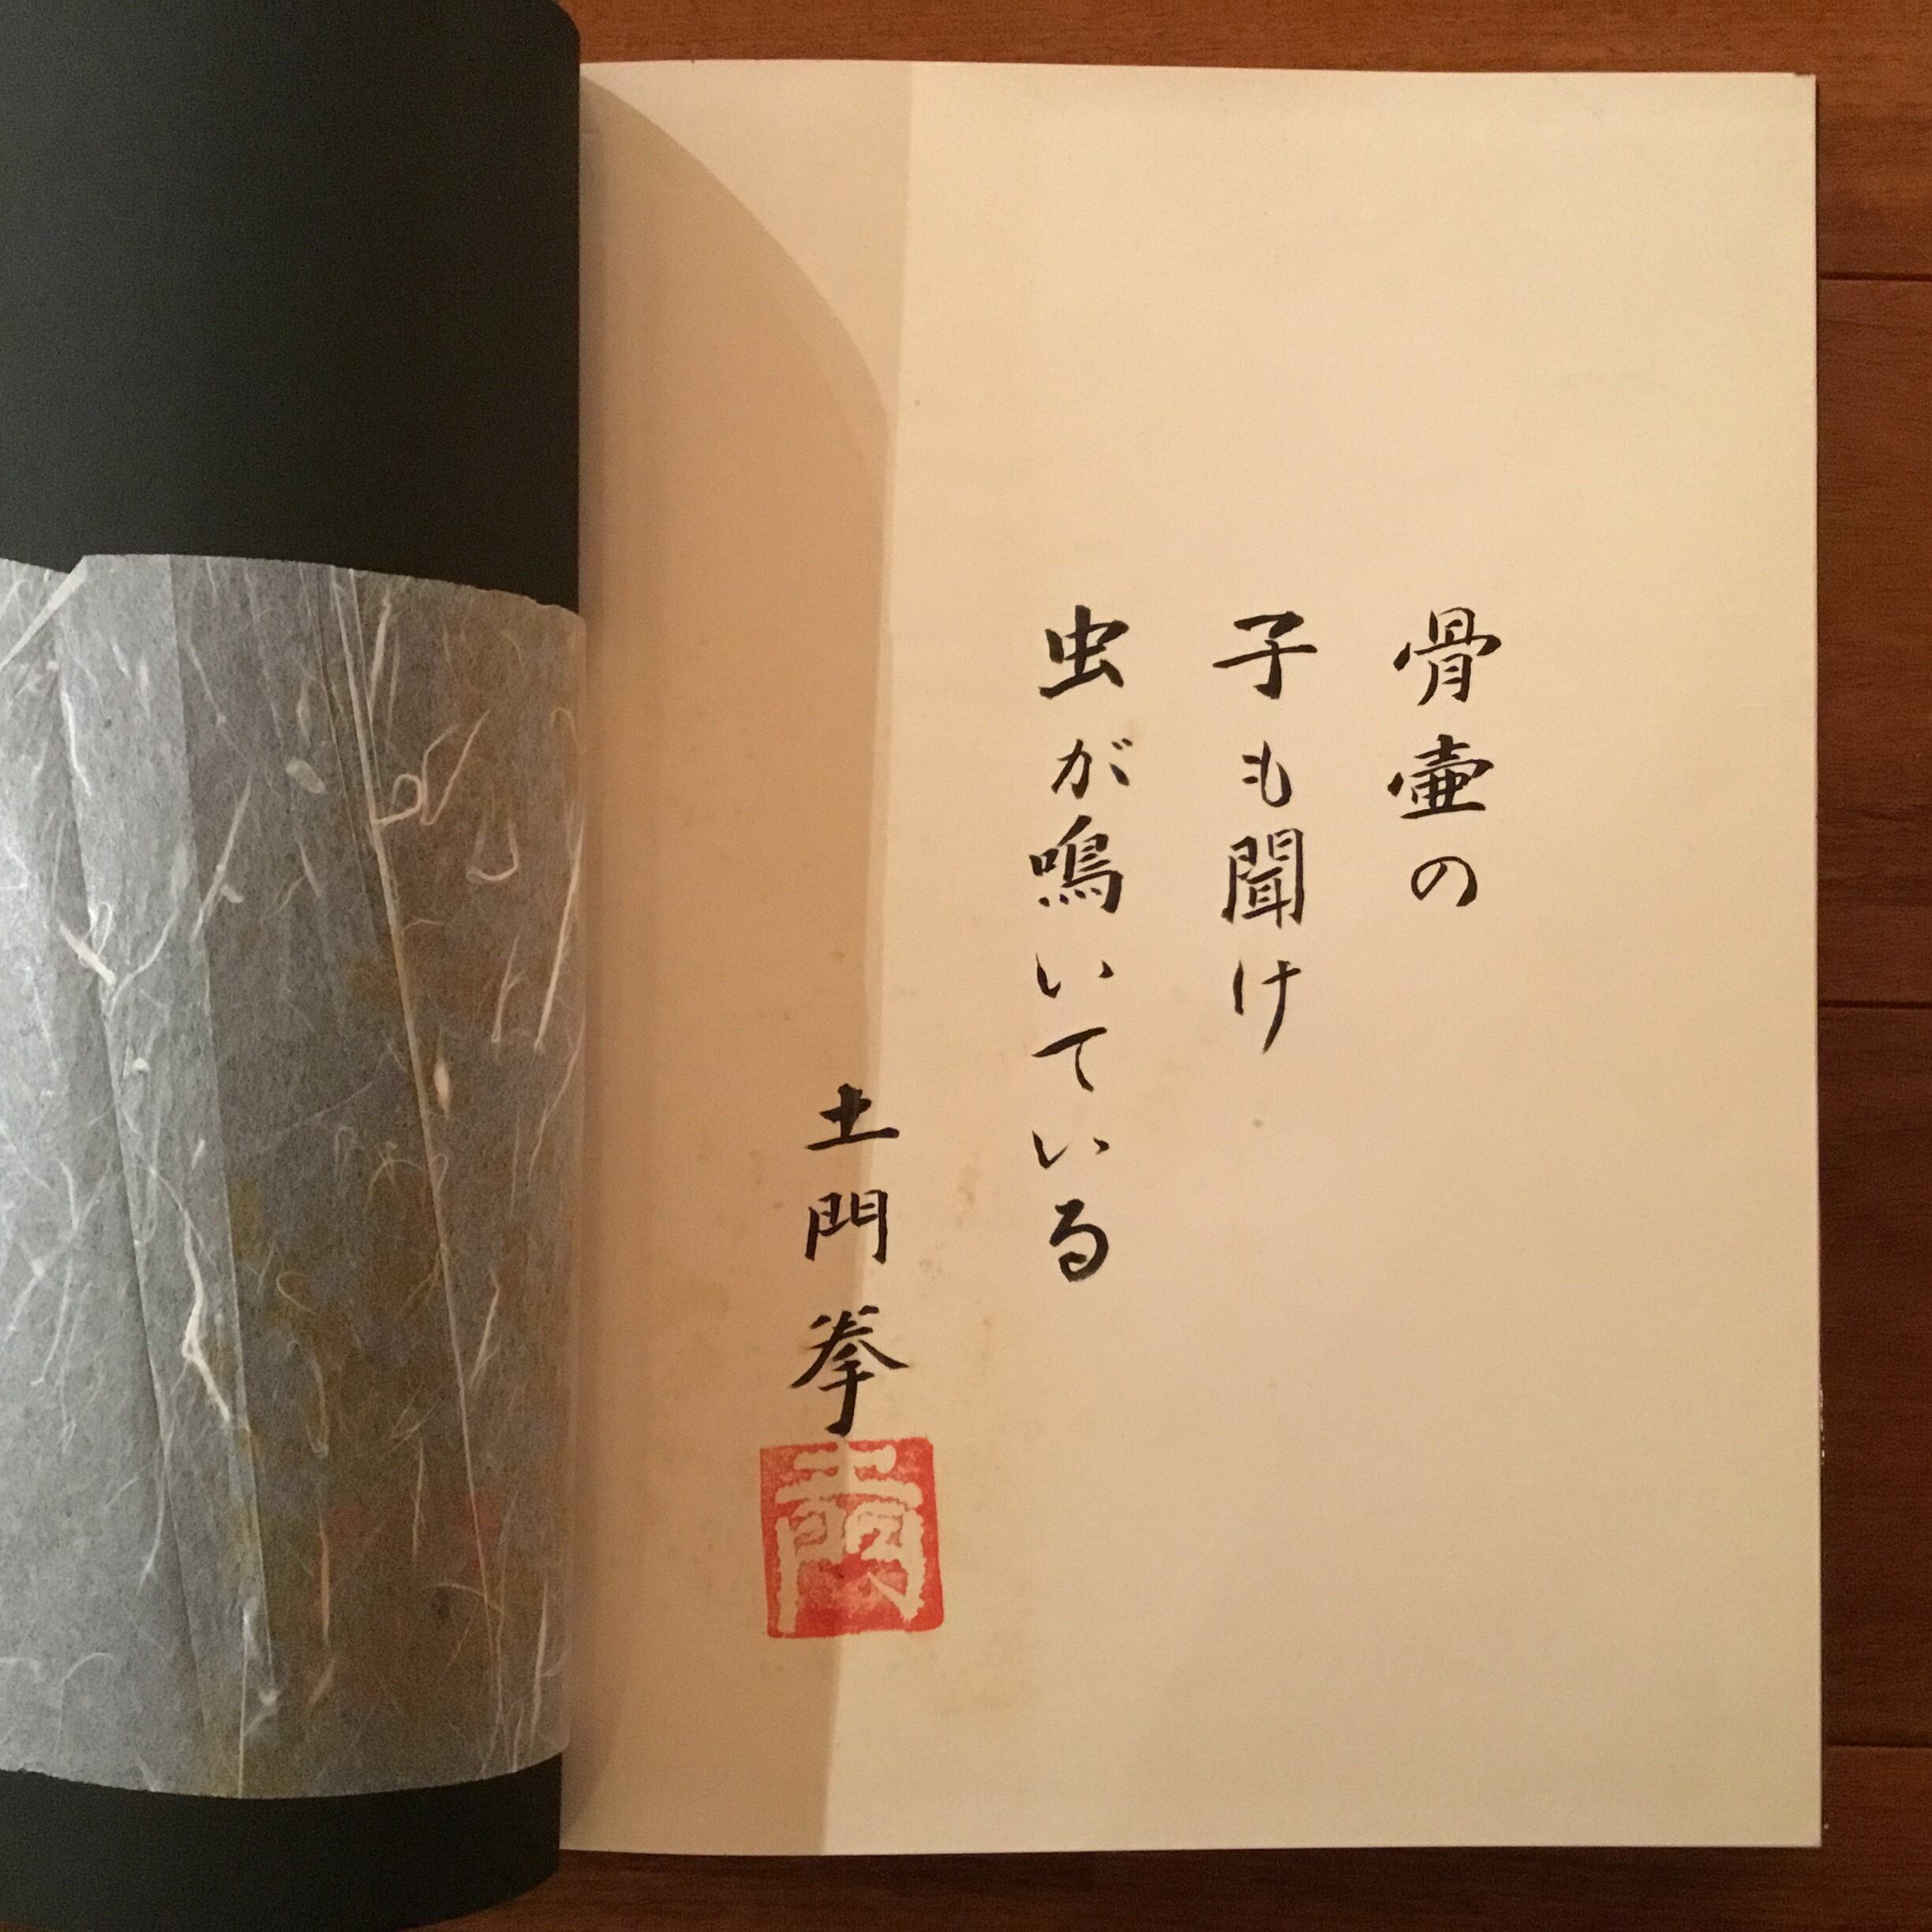 骨壷の
子も聞け
虫が鳴いている
土門拳
土門